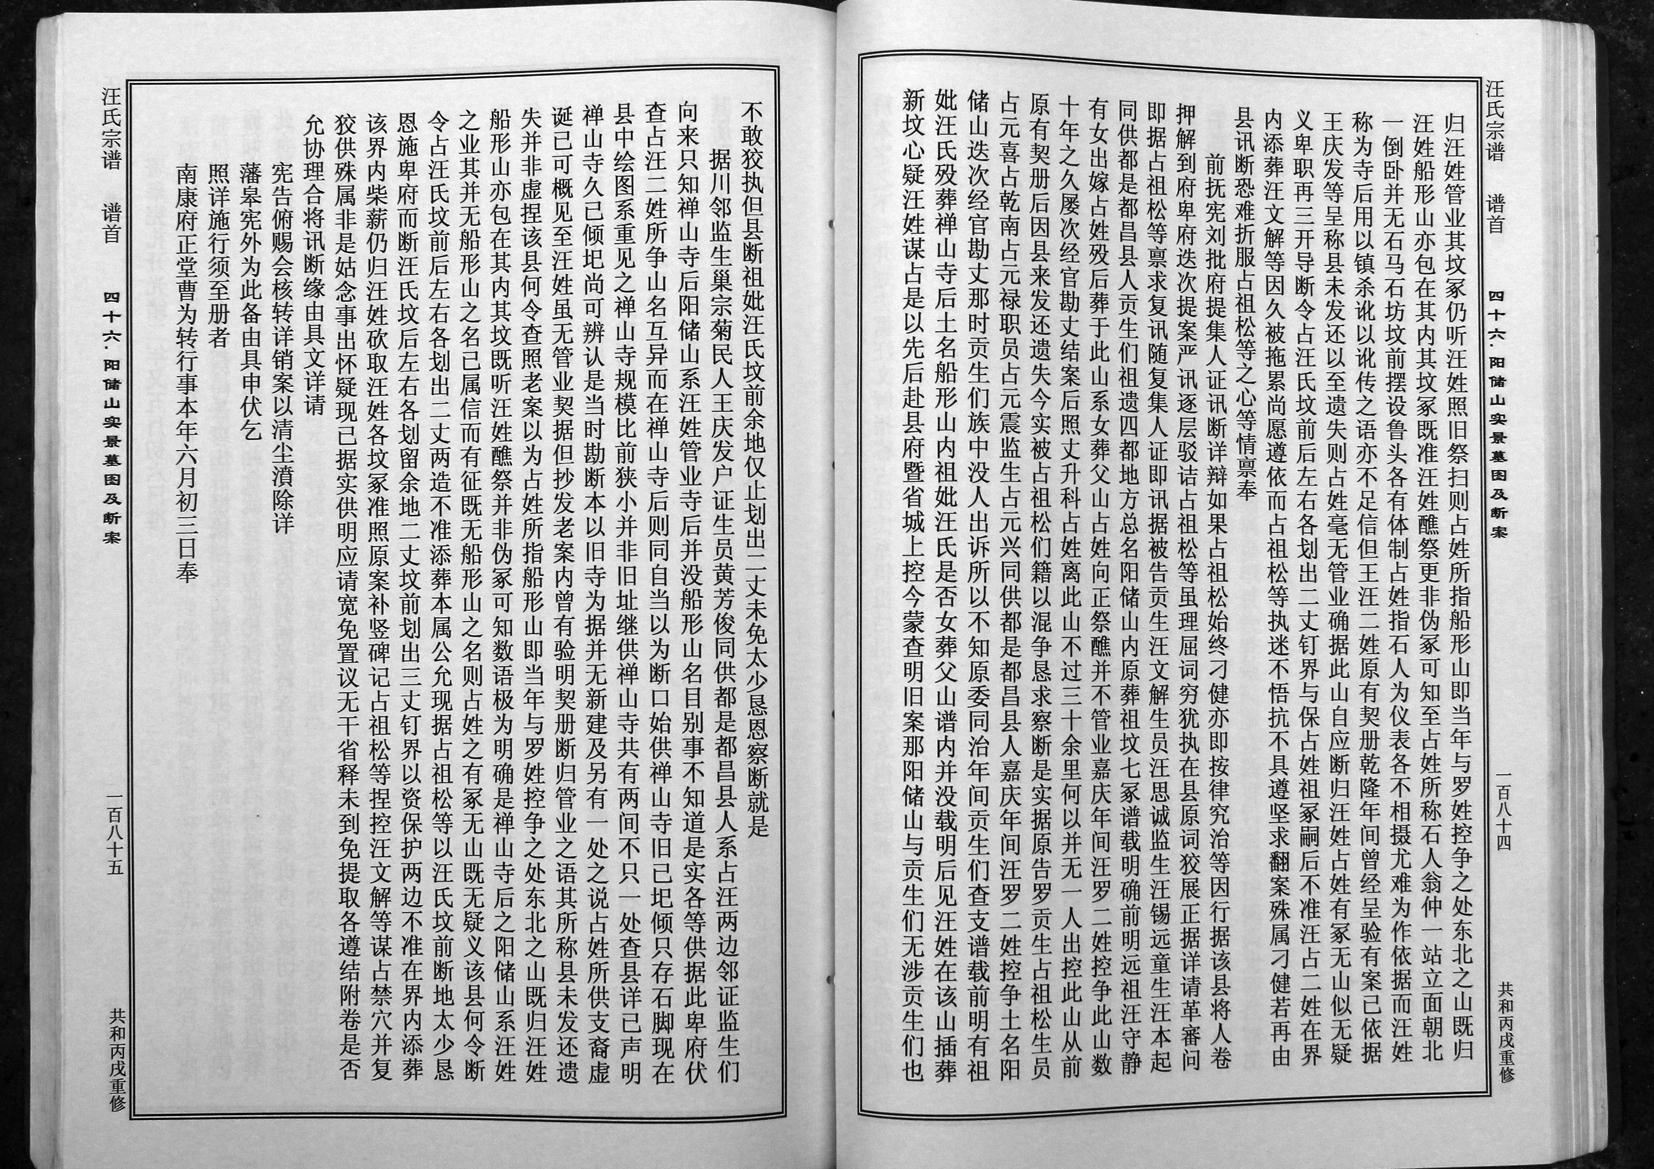 汪氏宗谱 谱首 四十六·阳储山实景墓图及断案 一百八十四 共和丙戌重修
归汪姓管业其坟冢仍听汪姓照旧祭扫则占姓所指船形山即当年与罗姓控争之处东北之山既归
汪姓船形山亦包在其内其坟冢既准汪姓醮祭更非伪冢可知至占姓所称石人翁仲一站立面朝北
一倒卧并无石马石坊坟前摆设鲁头各有体制占姓指石人为仪表各不相摄尤难为作依据而汪姓
称为寺后用以镇杀讹以讹传之语亦不足信但王汪二姓原有契册乾隆年间曾经呈验有案已依据
王庆发等呈称县未发还以至遗失则占姓毫无管业确据此山自应断归汪姓占姓有冢无山似无疑
义卑职再三开导断令占汪氏坟前后左右各划出二丈钉界与保占姓祖冢嗣后不准汪占二姓在界
内添葬汪文解等因久被拖累尚愿遵依而占祖松等执迷不悟抗不具遵坚求翻案殊属刁健若再由
县讯断恐难折服占祖松等之心等情禀奉
前抚宪刘批府提集人证讯断详辩如果占祖松始终刁健亦即按律究治等因行据该县将人卷
押解到府卑府迭次提案严讯逐层驳诘占祖松等虽理屈词穷犹执在县原词狡展正据详请革审问
即据占祖松等禀求复讯随复集人证即讯据被告贡生汪文解生员汪思诚监生汪锡远童生汪本起
同供都是都昌县人贡生们祖遗四都地方总名阳储山内原葬祖坟七冢谱载明确前明远祖汪守静
有女出嫁占姓殁后葬于此山系女葬父山占姓向正祭醮并不管业嘉庆年间汪罗二姓控争此山数
十年之久屡次经官勘丈结案后照丈升科占姓离此山不过三十余里何以并无一人出控此山从前
原有契册后因县来发还遗失今实被占祖松们籍以混争恳求察断是实据原告罗贡生占祖松生员
占元喜占乾南占元禄职员占元震监生占元兴同供都是都昌县人嘉庆年间汪罗二姓控争土名阳
储山迭次经官勘丈那时贡生们族中没人出诉所以不知原委同治年间贡生们查支谱载前明有祖
妣汪氏殁葬禅山寺后土名船形山内祖妣汪氏是否女葬父山谱内并没载明后见汪姓在该山插葬
新坟心疑汪姓谋占是以先后赴县府暨省城上控今蒙查明旧案那阳储山与贡生们无涉贡生们也
不敢狡执但县断祖妣汪氏坟前余地仅止划出二丈未免太少恳恩察断就是
据川邻监生巢宗菊民人王庆发户证生员黄芳俊同供都是都昌县人系占汪两边邻证监生们
向来只知禅山寺后阳储山系汪姓管业寺后并没船形山名目别事不知道是实各等供据此卑府伏
查占汪二姓所争山名互异而在禅山寺后则同自当以为断口始供禅山寺旧已圮倾只存石脚现在
县中绘图系重见之禅山寺规模比前狭小并非旧址继供禅山寺共有两间不只一处查县详已声明
禅山寺久己倾圯尚可辨认是当时勘断本以旧寺为据并无新建及另有一处之说占姓所供支裔虚
诞己可概见至汪姓虽无管业契据但抄发老案内曾有验明契册断归管业之语其所称县未发还遗
失并非虚捏该县何令查照老案以为占姓所指船形山即当年与罗姓控争之处东北之山既归汪姓
船形山亦包在其内其坟既听汪姓醮祭并非伪冢可知数语极为明确是禅山寺后之阳储山系汪姓
之业其并无船形山之名已属信而有征既无船形山之名则占姓之有冢无山既无疑义该县何令断
令占汪氏坟前后左右各划出二丈两造不准添葬本属公允现据占祖松等以汪氏坟前断地太少恳
恩施卑府而断汪氏坟后左右各划留余地二丈坟前划出三丈钉界以资保护两边不准在界内添葬
该界内柴薪仍归汪姓砍取汪姓各坟冢准照原案补竖碑记占祖松等捏控汪文解等谋占禁穴并复
狡供殊属非是姑念事出怀疑现已据实供明应请宽免置议无干省释未到免提取各遵结附卷是否
允协理合将讯断缘由具文详请
宪告俯赐会核转详销案以清尘濆除详
藩臬宪外为此备由具申伏乞
照详施行须至册者
南康府正堂曹为转行事本年六月初三日奉
汪氏宗谱 谱首 四十六·阳储山实景墓图及断案 一百八十五 共和丙戌重修